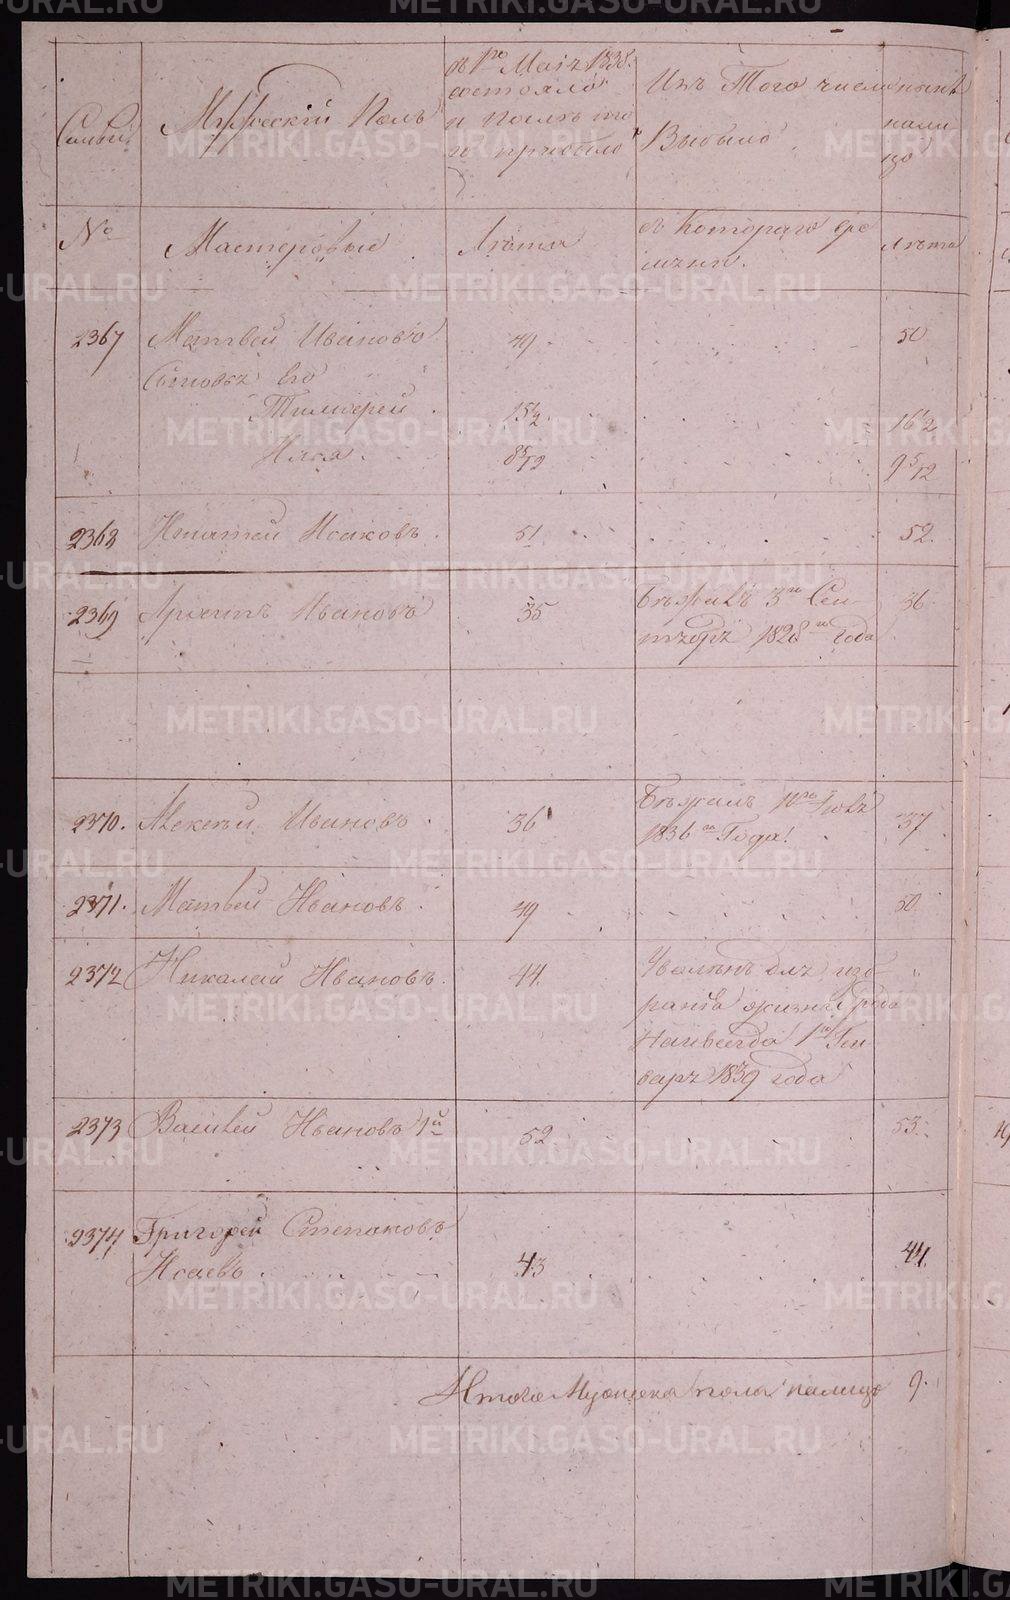 Семьи
Мужеский Полъ
съ 1го Маiя 1838.
состояло
и послѣ то
го прибыло
Изъ Того числа
Выбыло
нынѣ
нали
цо
№
Мастеровые
Лѣта
съ Котораго вре
мѣни.
Лѣта
2367 Матвей Ивановъ 49 50
Сыновья Его
Тимофей 15 1/2 16 1/2
Илья 8 5/12 9 5/12
2368 Игнатей Исаковъ 51 52.
2369 Ивановъ 35 Бѣжалъ 3го Сен 36
тября 1828го года
2370. Алексей Ивановъ 36 Бѣжалъ 10го 37
1836го Года
2371. Матвей Ивановъ 49 50
2372 Николай Ивановъ. 44. Уволѣнъ для изб
ранiя жизни рода
Навсегда 1го Ген
варя 1839 года
2373 Василей Ивановъ 1й 52 53.
2374 Григорей Степановъ
Исаевъ 43 44.
Итого Мужеска пола налицо 9.
METRIKI.GASO-URAL.RU